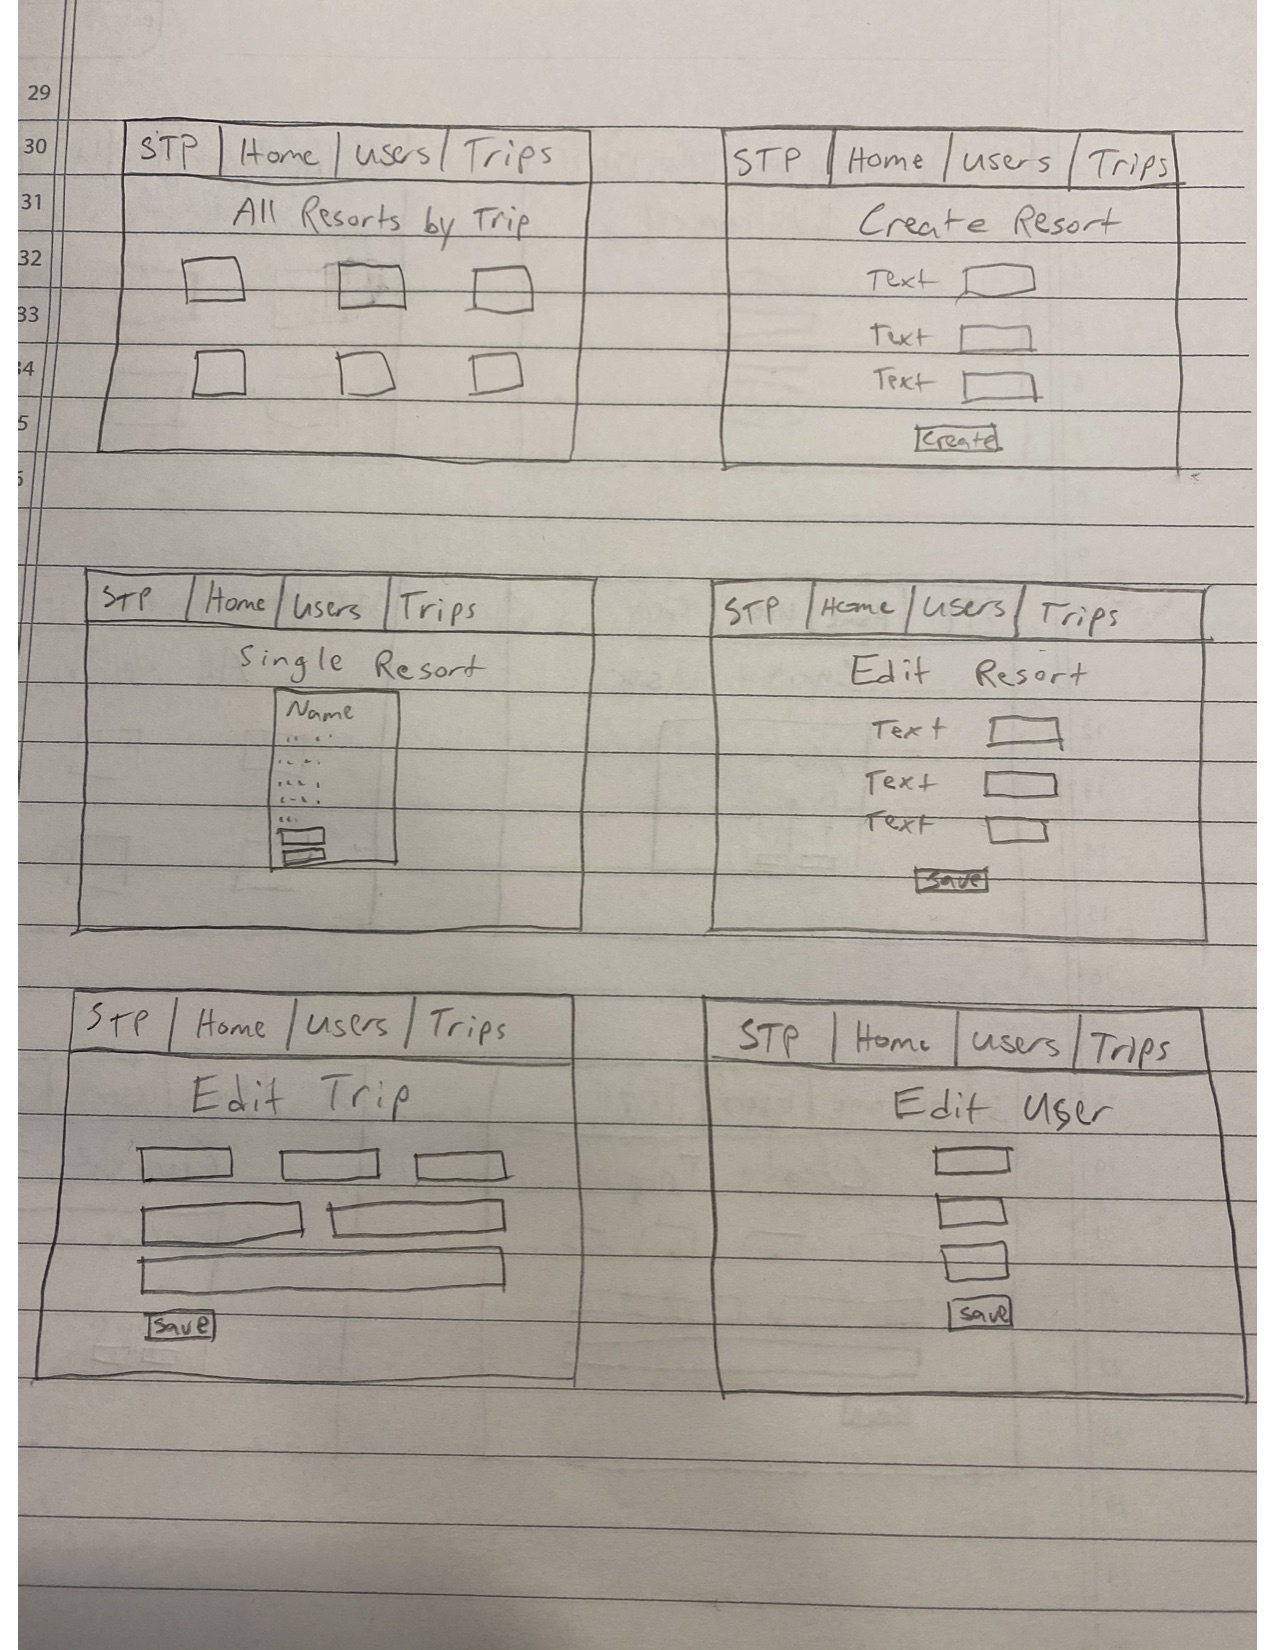 29
30
31
32
33
34
5
STP Home users Trips
All Resorts by Trip
STP Home users Trips
Create Resort
Text
Text
Text
Create
STP Home users Trips
Single Resort
Name
STP Home users Trips
Edit Resort
Text
Text
Text
Save
STP Home users Trips
Edit Trip
Save
STP Home users Trips
Edit User
Save